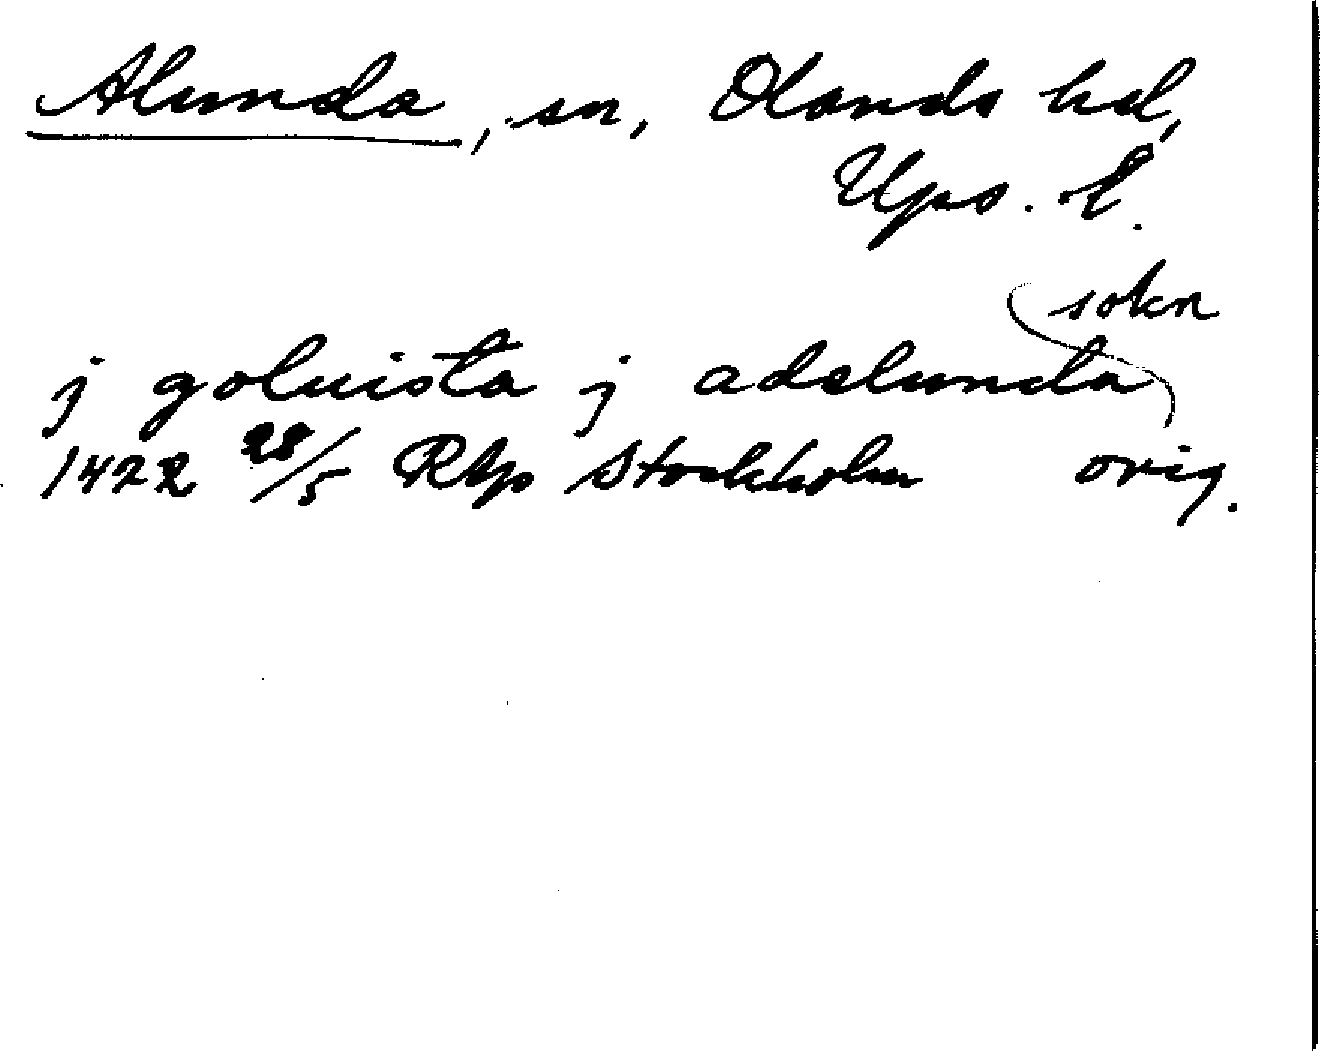 Alunda, sn, Olands hd,
Ups. l.
j goluista j adelunda sokn
1422 28/5 Rap Stockholm orig.